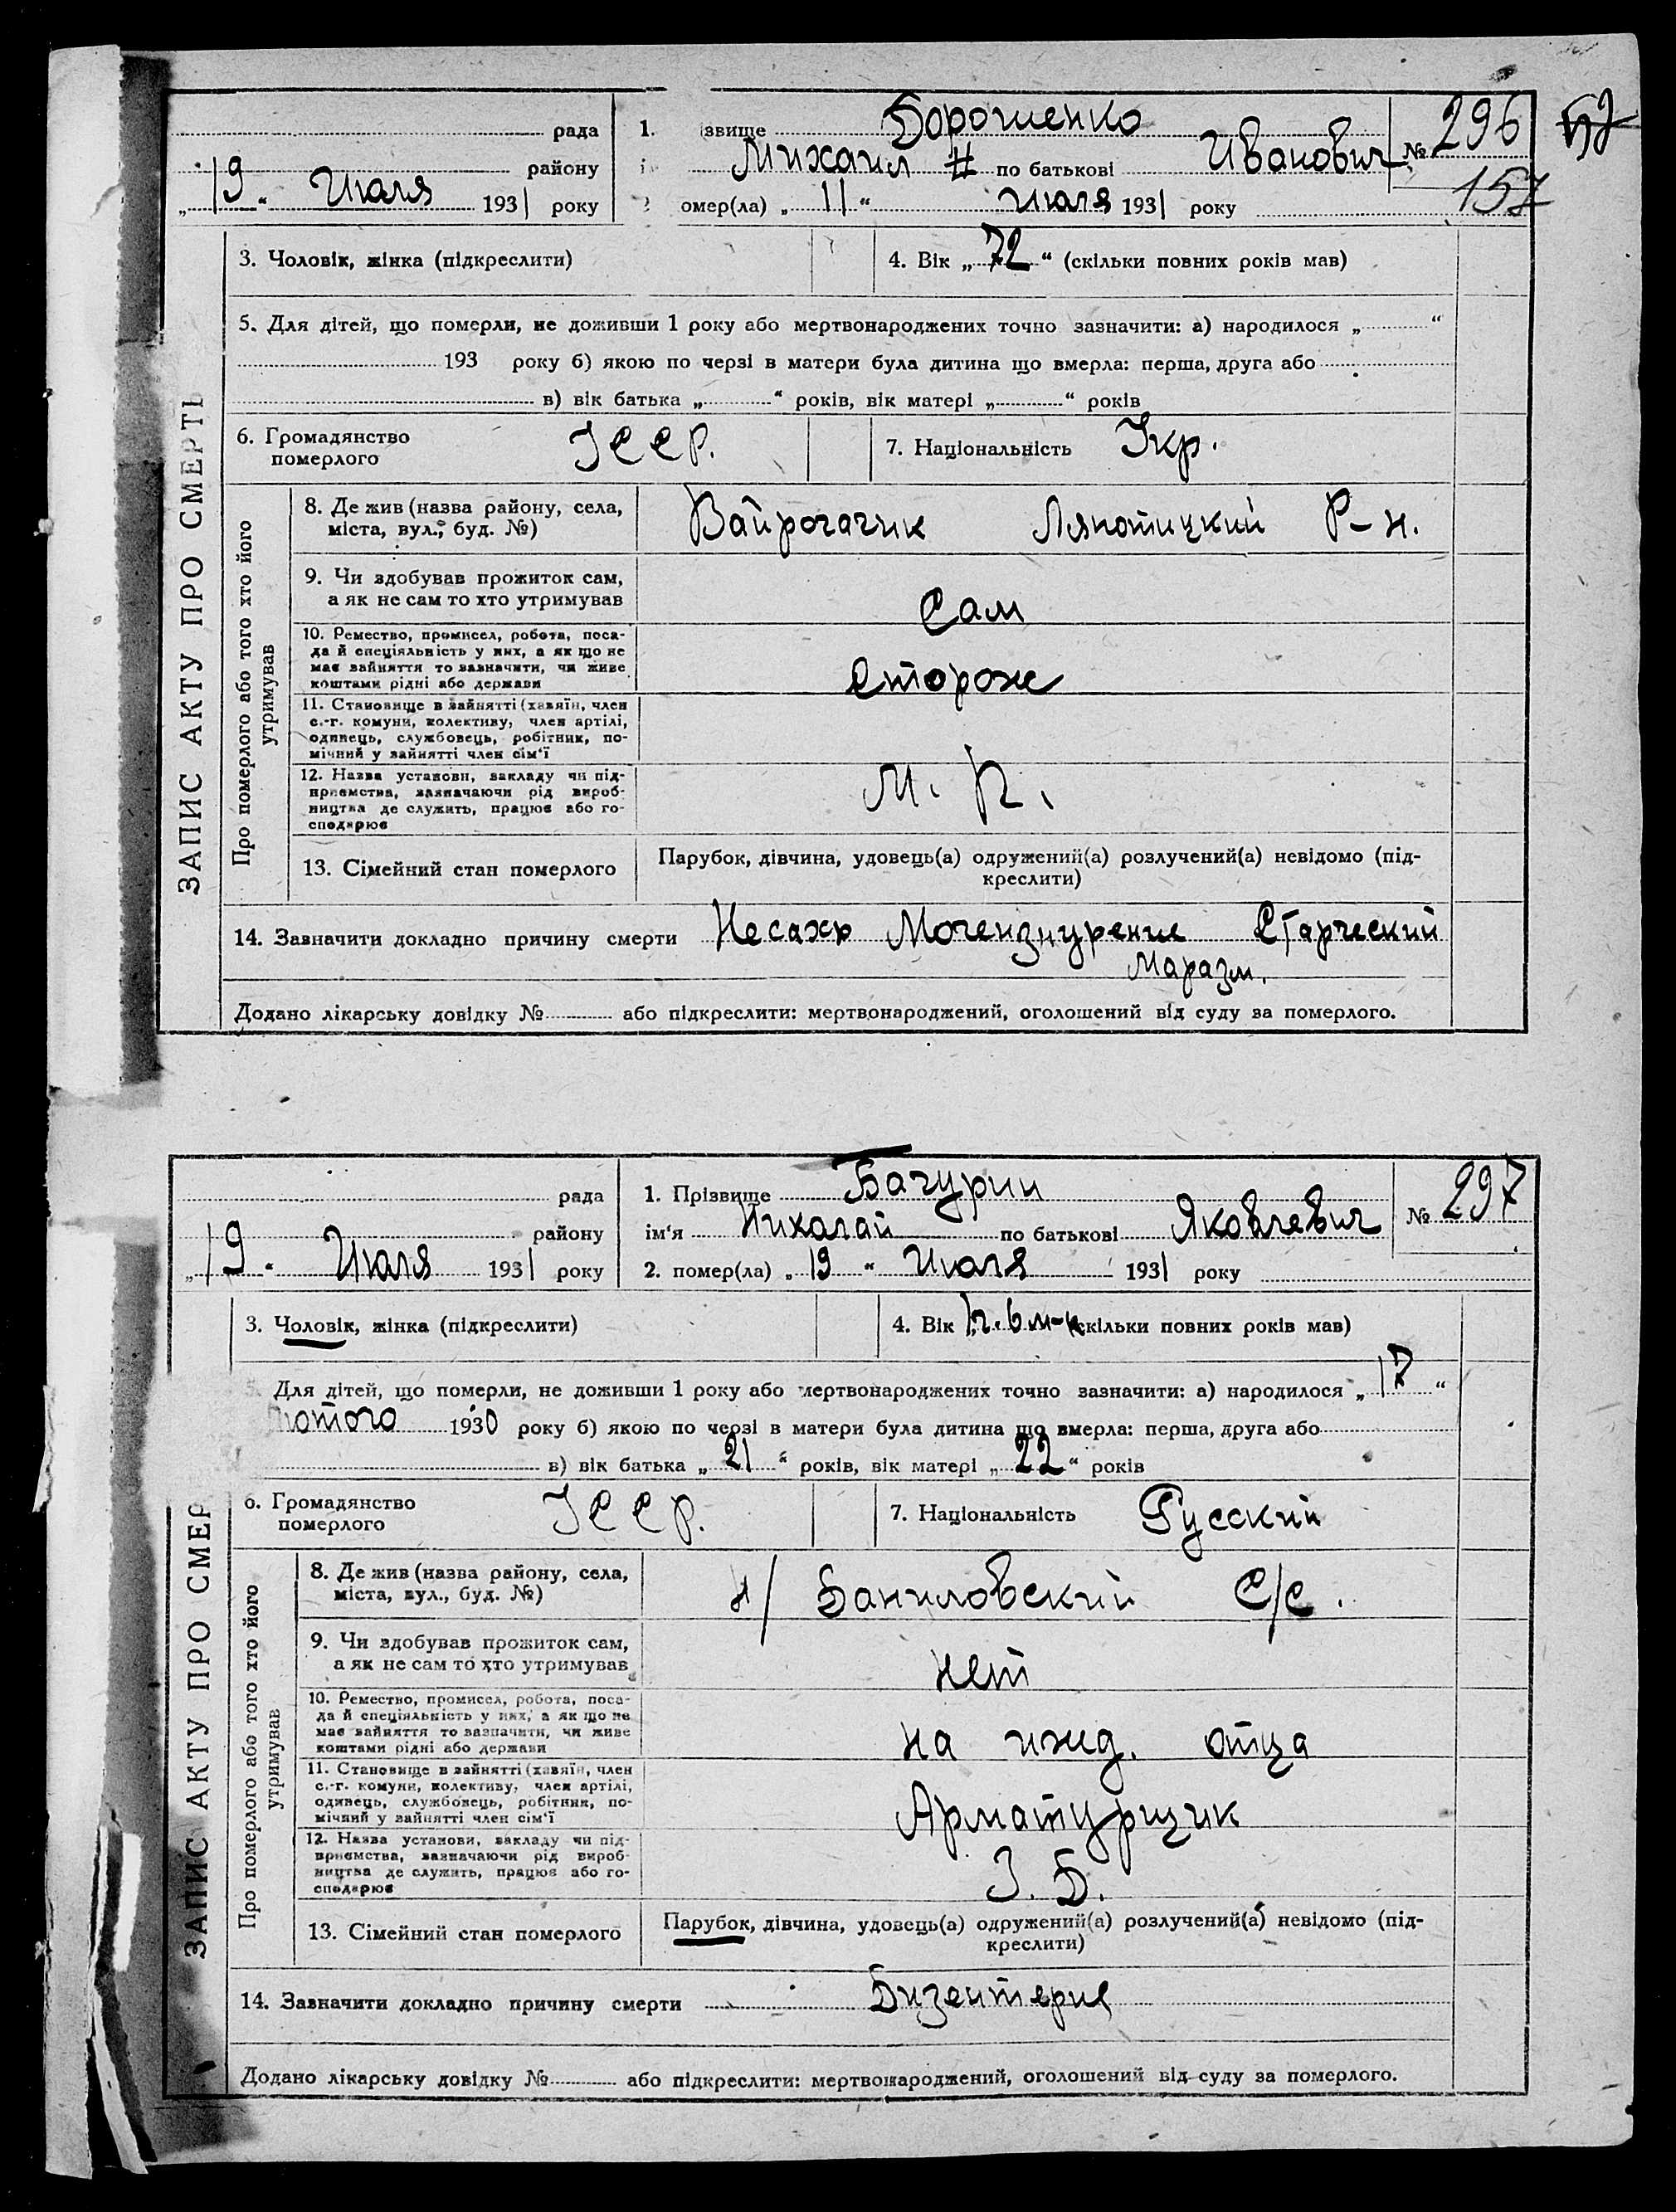 рада
району
„19“ Июля 1931 року
1. ізвище Дорошенко
Михаил по батькові Иванович
омер(ла) „11“ июля 1931 року
№ 296
157
3. Чоловік, жінка (підкреслити)
4. Вік „72“ (скільки повних років мав)
5. Для дітей, що померли, не доживши 1 року або мертвонароджених точно зазначити: а) народилося „ “
193 року б) якою по черзі в матери була дитина що вмерла: перша, друга або
в) вік батька „ “ років, вік матері „ “ років
6. Громадянство померлого УССР.
7. Національність Укр.
ЗАПИС АКТУ ПРО СМЕРТІ
Про померлого або того хто його утримував
8. Де жив (назва району, села,
міста, вул., буд. №)
Р-н.
9. Чи здобував прожиток сам,
а як не сам то хто утримував
Сам
10. Ремество, промисел, робота, поса-
да й спеціяльність у них, а як що не
має зайняття то зазначити, чи живе
коштами рідні або держави
Сторож
11. Становище в зайнятті (хазяїн, член
с.-г. комуни, колективу, член артілі,
одинець, службовець, робітник, по-
мічний у зайнятті член сім‘ї
12. Назва установи, закладу чи під-
приємства, зазначаючи рід вироб-
ництва де служить, працює або го-
сподарює
М. П.
13. Сімейний стан померлого
Парубок, дівчина, удовець(а) одружений(а) розлучений(а) невідомо (під-
креслити)
14. Зазначити докладно причину смерти Несахр Мочеизнурение Старческий
Маразм.
Додано лікарську довідку № або підкреслити: мертвонароджений, оголошений від суду за померлого.
рада
району
„19“ Июля 1931 року
1. Прізвище Бачурин
ім‘я Николай по батькові Яковлевич
2. помер(ла) „19“ Июля 1931 року
№ 297
3. Чоловік, жінка (підкреслити)
4. Вік 1 г. 6 м-ц (скільки повних років мав)
Для дітей, що померли, не доживши 1 року або мертвонароджених точно зазначити: а) народилося „17“
лютого 1930 року б) якою по черзі в матери була дитина що вмерла: перша, друга або
в) вік батька „21“ років, вік матері „22“ років
6. Громадянство померлого УССР.
7. Національність Русский
ЗАПИС АКТУ ПРО СМЕР
Про померлого або того хто його утримував
8. Де жив (назва району, села,
міста, вул., буд. №)
н/ Даниловский С/С.
9. Чи здобував прожиток сам,
а як не сам то хто утримував
нет
10. Ремество, промисел, робота, поса-
да й спеціяльність у них, а як що не
має зайняття то зазначити, чи живе
коштами рідні або держави
на ижд. отца
11. Становище в зайнятті (хазяїн, член
с.-г. комуни, колективу, член артілі,
одинець, службовець, робітник, по-
мічний у зайнятті член сім‘ї
Арматурщик
12. Назва установи, закладу чи під-
приємства, зазначаючи рід вироб-
ництва де служить, працює або го-
сподарює
З. Б.
13. Сімейний стан померлого
Парубок, дівчина, удовець(а) одружений(а) розлучений(а) невідомо (під-
креслити)
14. Зазначити докладно причину смерти Дизентерия
Додано лікарську довідку № або підкреслити: мертвонароджений, оголошений від суду за померлого.